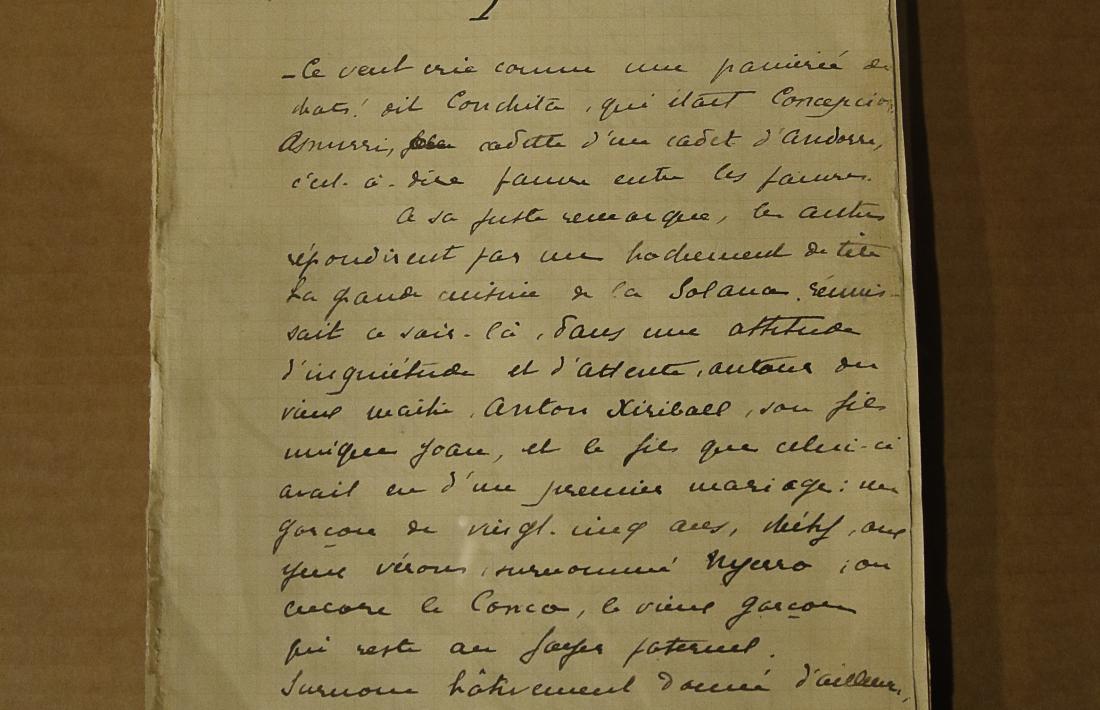 I
– Ce vent crie comme une panierée de
chats! dit Conchita, qui était Concepcion
Asnurri, cadette d'un cadet d'Andorre,
c'est-à-dire pauvre entre les pauvres.
A sa juste remarque, les autres
répondirent par un hochement de tête
La grande cuisine de la Solana réunis-
sait ce soir-là, dans une attitude
d'inquiétude et d'attente, autour du
vieux maître, Anton Xiriball, son fils
unique Joan, et le fils que celui-ci
avait eu d'un premier mariage: un
garçon de vingt-cinq ans, chétif, aux
yeux vérons, surnommé Nyerro, ou
encore le Conco, le vieux garçon
qui reste au foyer paternel.
Surnom hâtivement donné d'ailleurs,